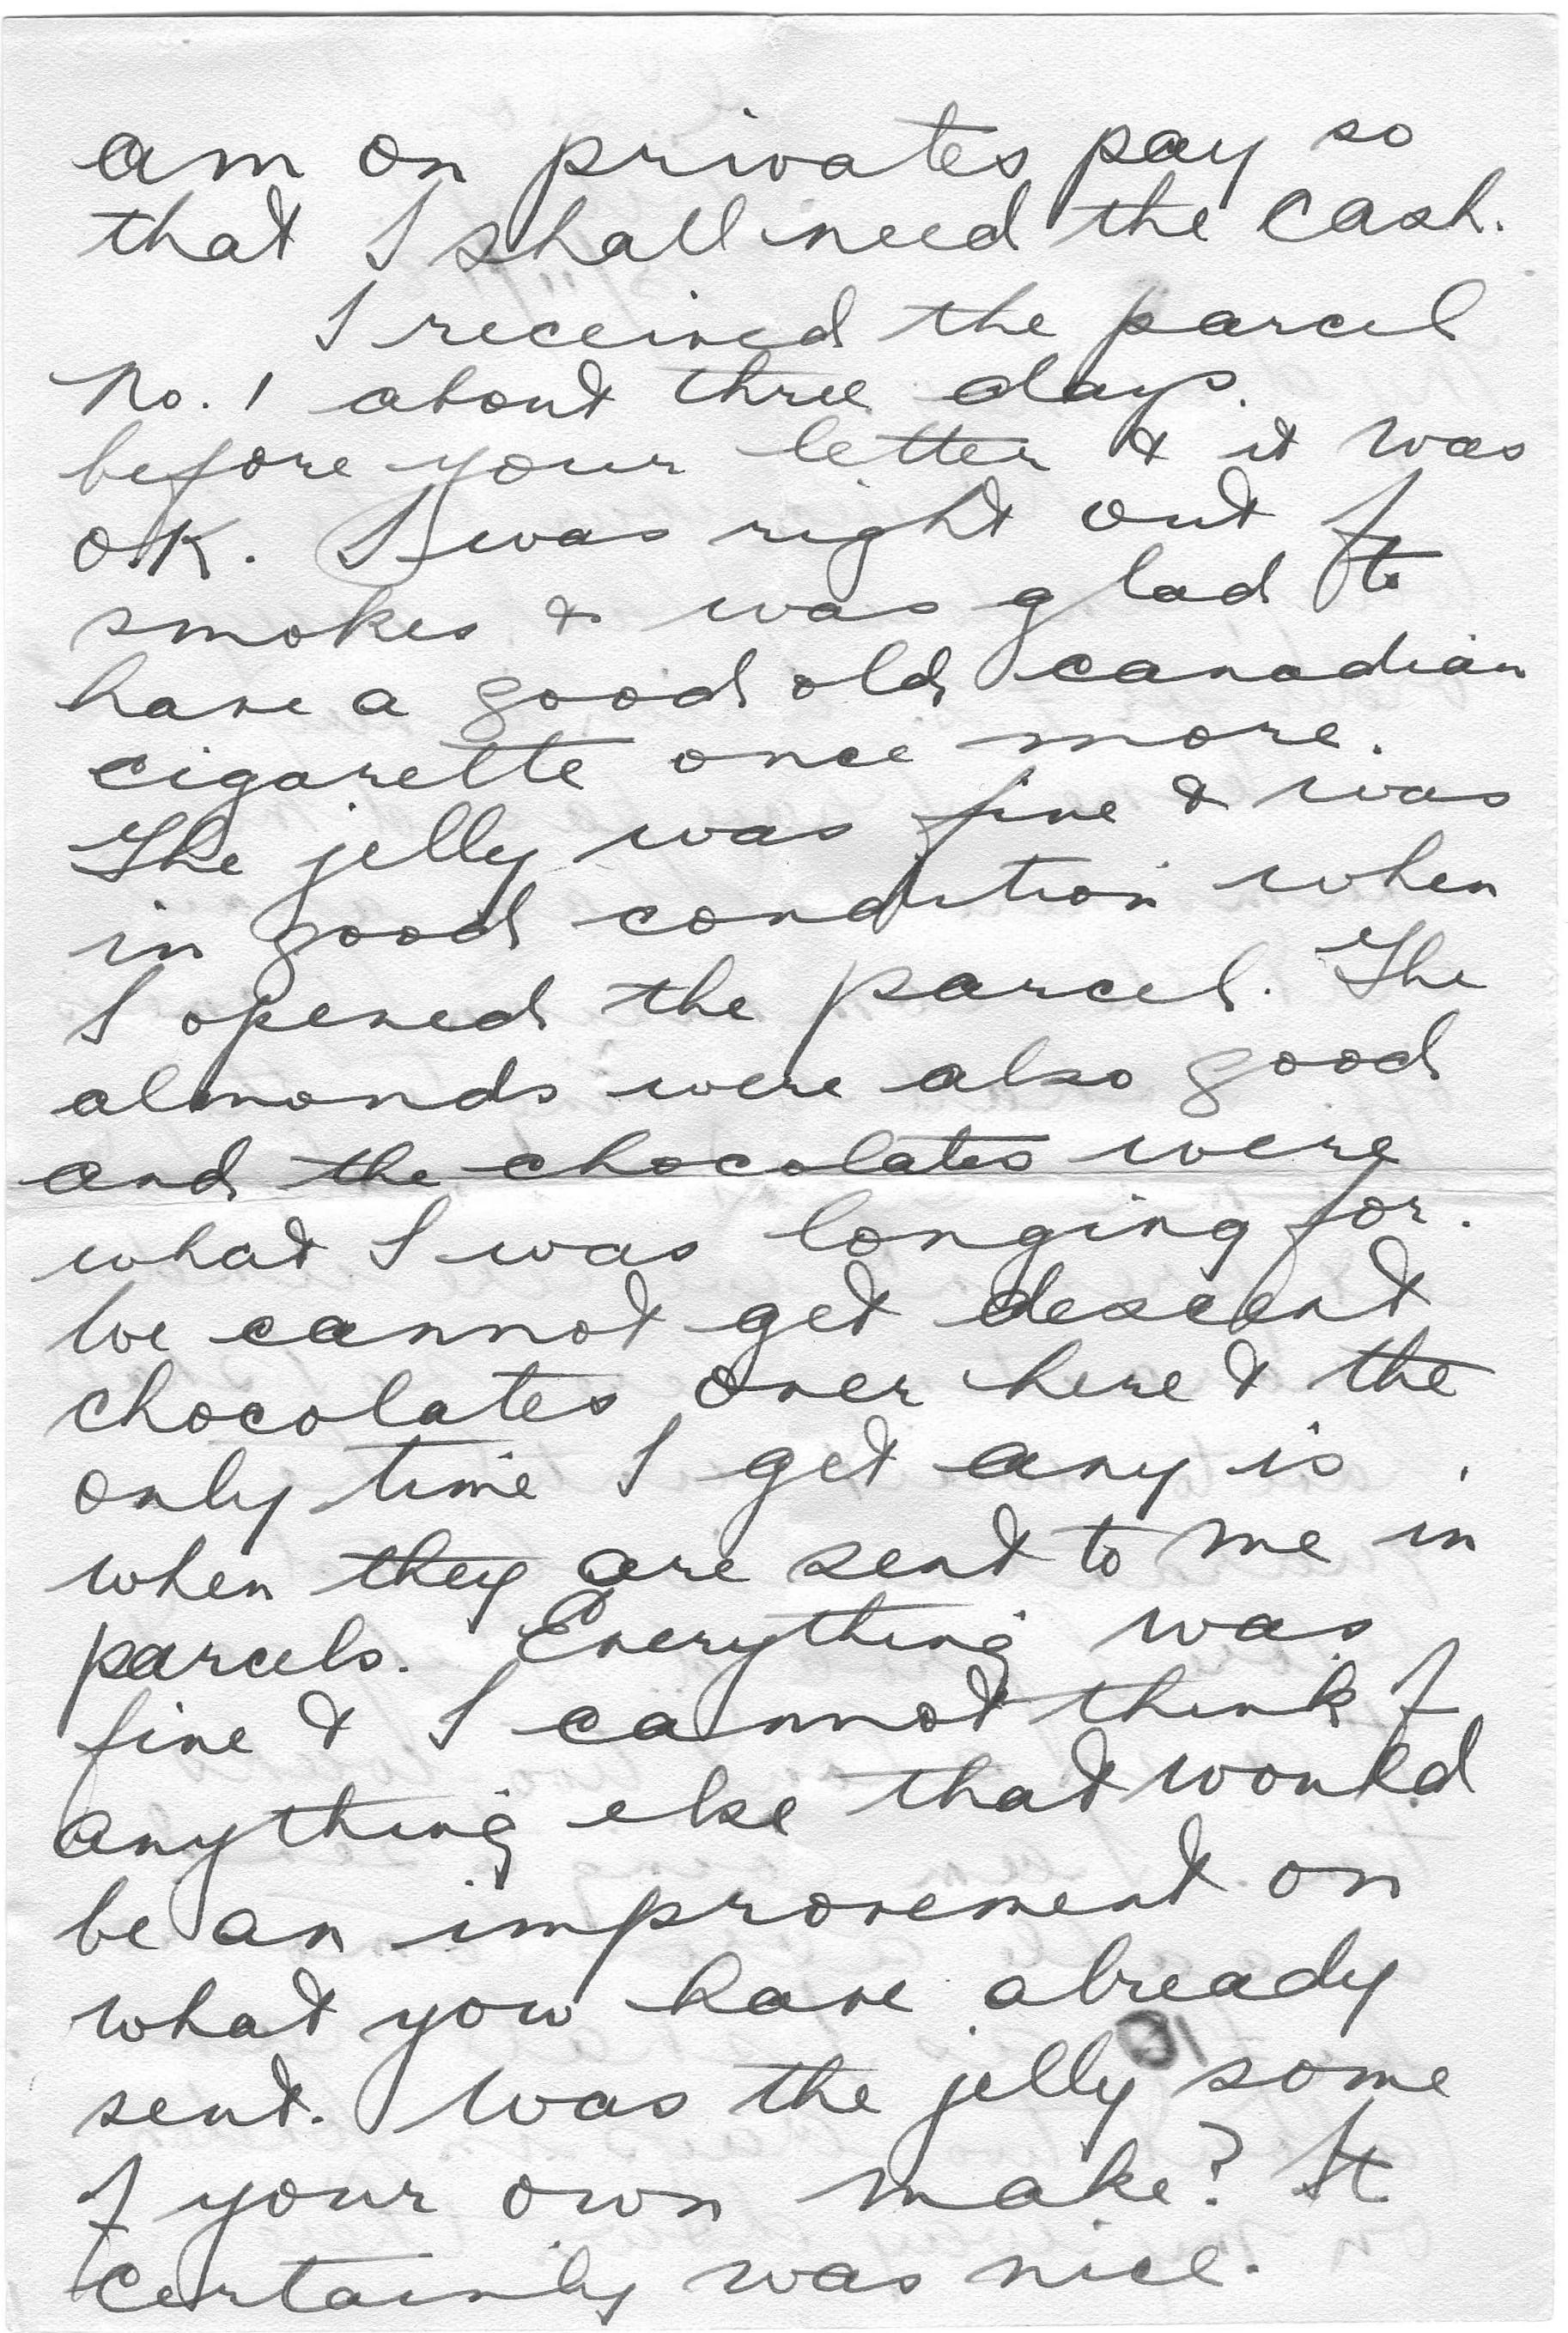 am on privates pay so
that I shall need the cash.
I received the parcel
No. 1 about three days
before your letter & it was
OK. I was right out of
smokes & was glad to
have a good old canadian
cigarette once more.
The jelly was fine & was
in good condition when
I opened the parcel. The
almonds were also good
and the chocolates were
what I was longing for.
We cannot get descent
chocolates over here & the
only time I get any is
when they are sent to me in
parcels. Everything was
fine & I cannot think of
anything else that would
be an improvement on
what you have already
sent. Was the jelly some
of your own make? It
certainly was nice.